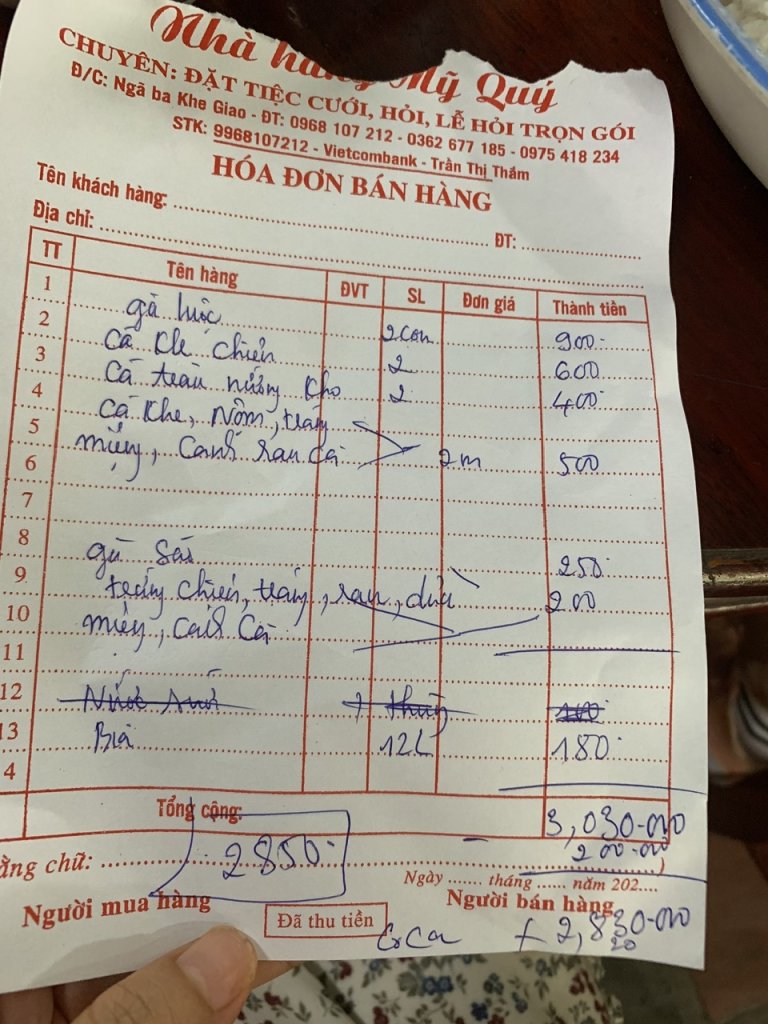 Nhà hàng Mỹ Quý
CHUYÊN: ĐẶT TIỆC CƯỚI, HỎI, LỄ HỎI TRỌN GÓI
Đ/C: Ngã ba Khe Giao - ĐT: 0968 107 212 - 0362 677 185 - 0975 418 234
STK: 9968107212 - Vietcombank - Trần Thị Thắm
HÓA ĐƠN BÁN HÀNG
Tên khách hàng: ĐT:
Địa chỉ:
TT Tên hàng ĐVT SL Đơn giá Thành tiền
1 gà luộc 2 con 900
2 cá khe chiên 2 600
3 cá tràu nướng kho 2 400
4 cá khe, nộm, tráy
5 miến, canh rau cà 2m 500
6
7
8 gà 250
9 trứng chiên, tráy, rau, dưa 200
10 miến, canh cà
11
12 1 thùng
13 Bia 12L 180
4
Tổng cộng: 3,030.000
200.000
ằng chữ: 2850
Ngày tháng năm 202
Người mua hàng Người bán hàng
Đã thu tiền
+ 2,830.000
20